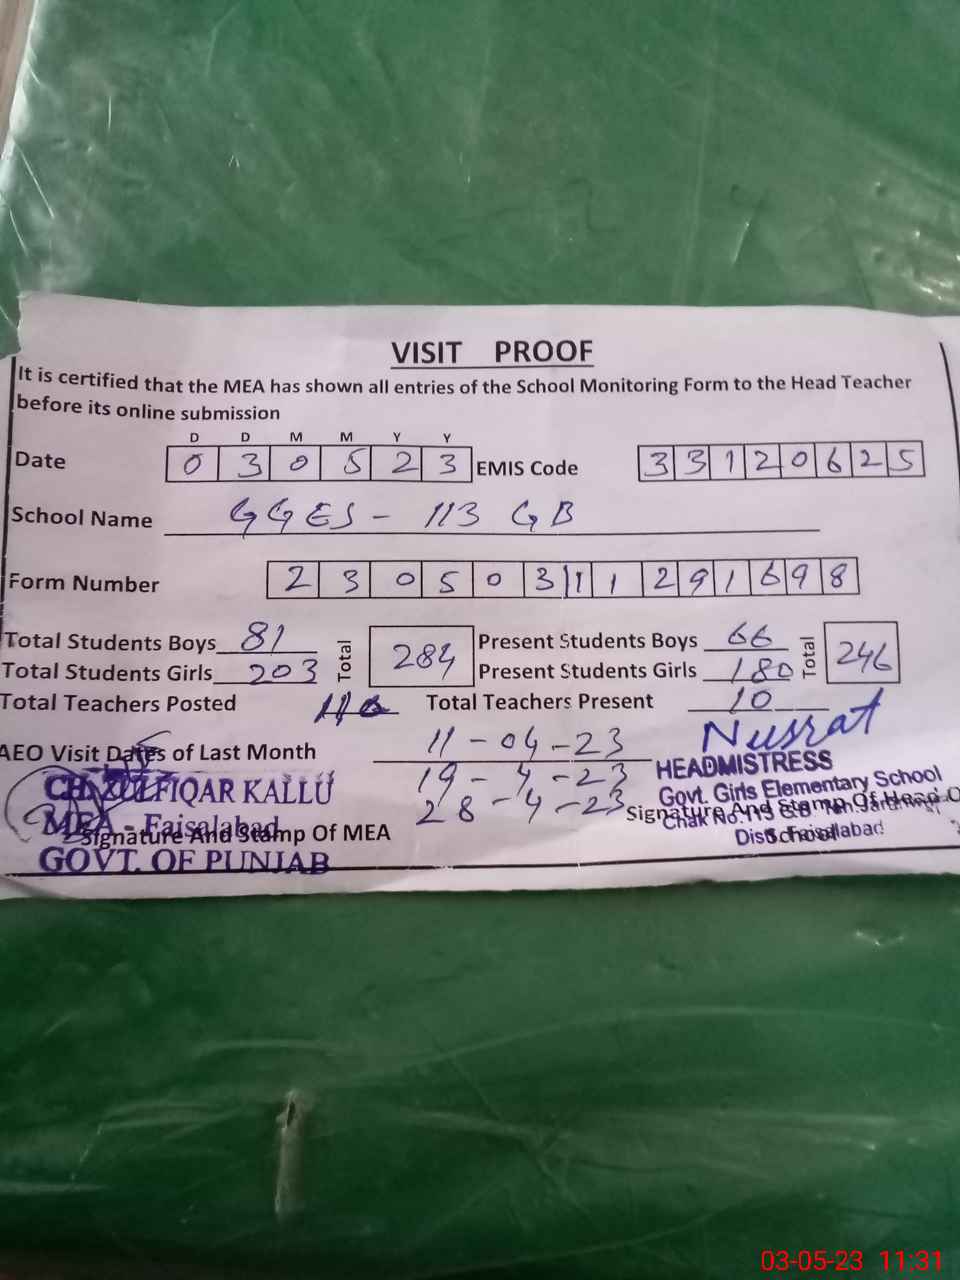 VISIT PROOF
It is certified that the MEA has shown all entries of the School Monitoring Form to the Head Teacher
before its online submission
D D M M Y Y
Date 0 3 0 5 2 3 EMIS Code 3 3 1 2 0 6 2 5
School Name GGES - 113 GB
Form Number 2 3 0 5 0 3 1 1 2 9 1 6 9 8
Total Students Boys 81 Total 284 Present Students Boys 66 Total 246
Total Students Girls 203 Present Students Girls 180
Total Teachers Posted Total Teachers Present 10
AEO Visit Dates of Last Month 11-04-23 Nusrat
19-4-23 HEADMISTRESS
28-4-23 Govt. Girls Elementary School
CH. ZULFIQAR KALLU
MEA - Faisalabad
Signature And Stamp Of MEA
GOVT. OF PUNJAB
Signature And Stamp Of Head Of
Chak No. 113 G.B.
School
Distt. Faisalabad
03-05-23 11:31